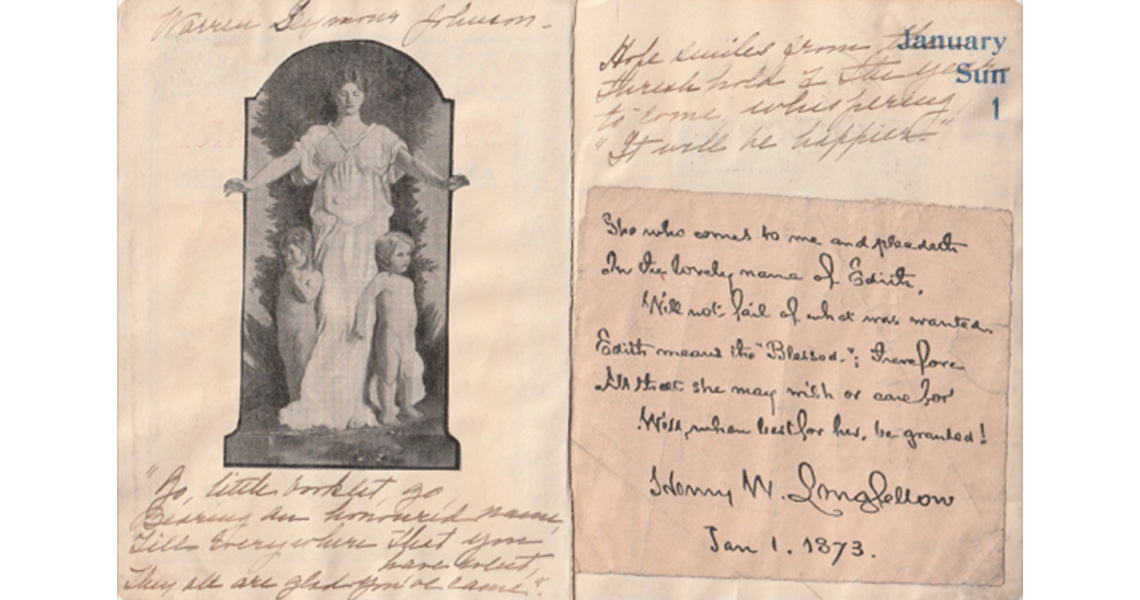 Warren Seymour Johnson -
"Go, little booklet, go,
Bearing an honoured name,
Till everywhere that you
have went,
They all are glad you've came".
January
Sun
1
Hope smiles from the
threshhold of the year
to come, whispering
"It will be happier-"
She who comes to me and pleadeth
In the lovely name of Edith,
Will not fail of what was wanted.
Edith means the "Blessed."; therefore
All that she may wish or care for
Will, when best for her, be granted!
Henry W. Longfellow
Jan 1. 1873.